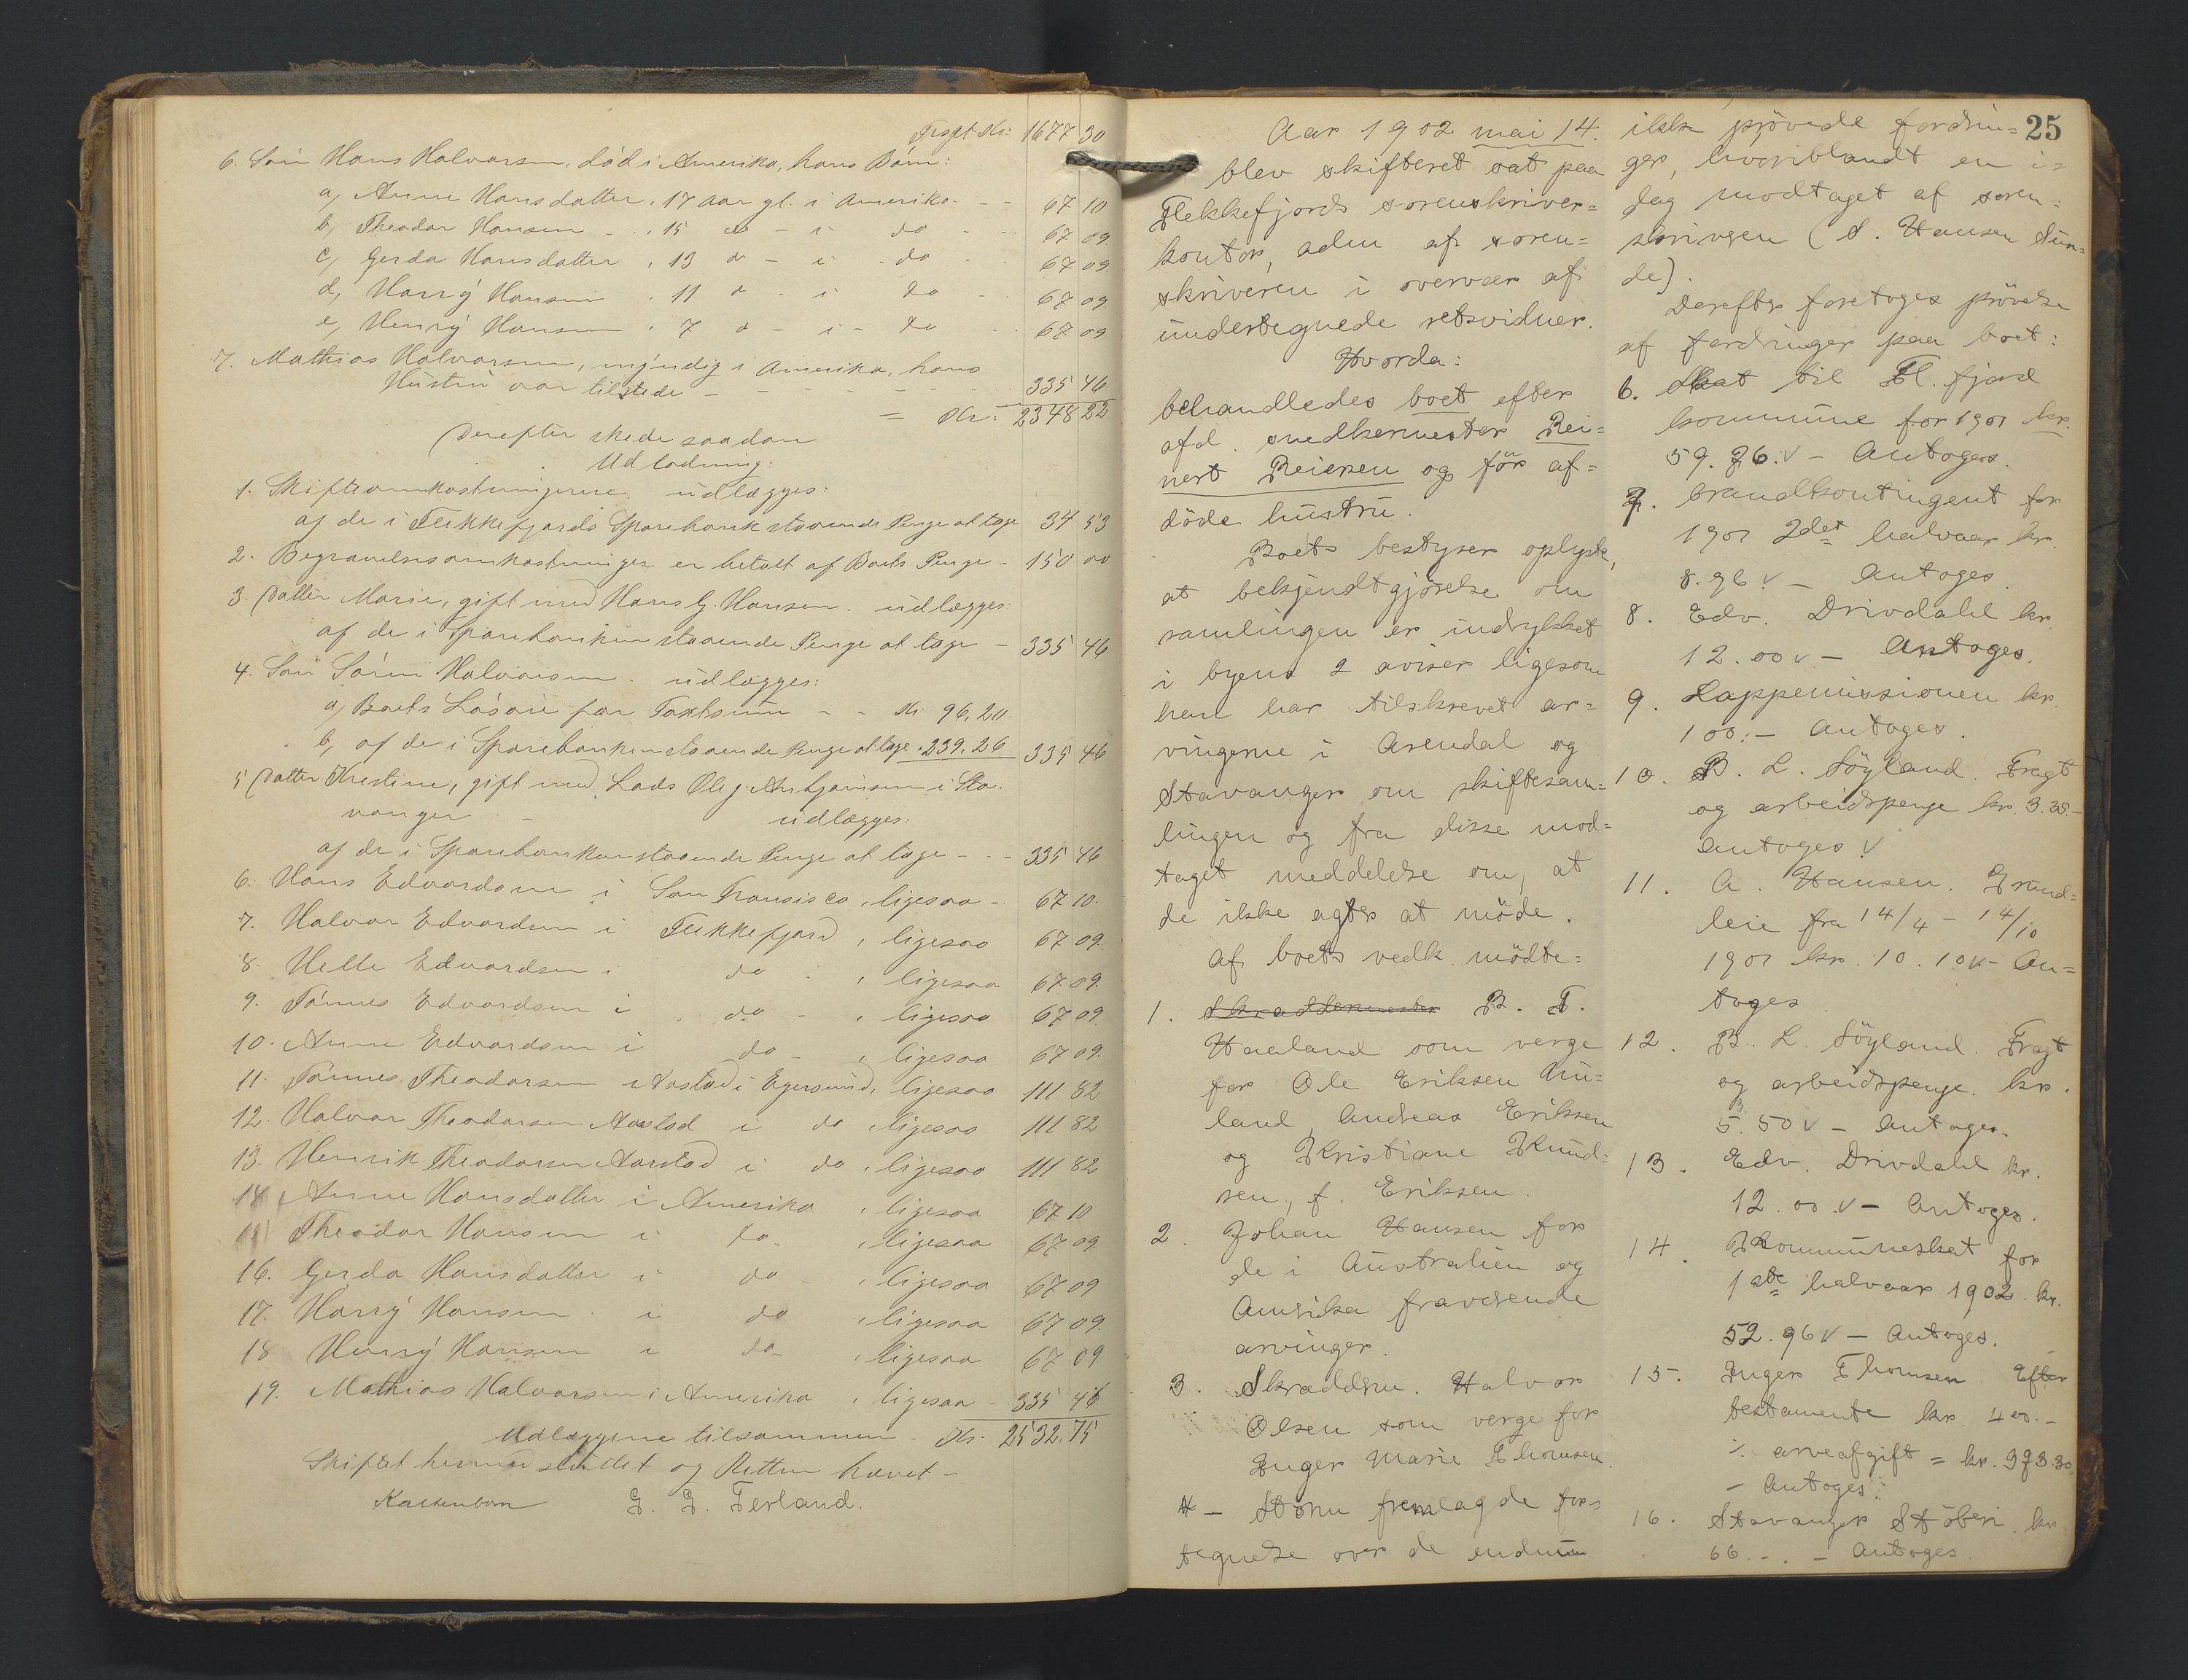 Trspt Kr: 1677 30
6. Søn Hans Halvorsen, død i Amerika, hans Børn:
a, Anne Hansdatter, 17 Aar gl. i Amerika - - 67 10
b, Theodor Hansen - , 15 do - i do - - 67 09
c, Gerda Hansdatter , 13 do - i - do - - 67 09
d, Harry Hansen , 11 do - i do - 67 09
e, Henry Hansen , 7 do - i - do - - 67 09
7. Mathias Halvorsen, myndig i Amerika, hans
Hustru var tilstede - - - - - - 335 46
= Kr: 2348 22
Derefter skede saadan
Udlodning:
1. Skifteomkostningerne udlægges:
af de i Flekkefjords Sparebank staaende Penge at tage 34 53
2. Begravelsesomkostninger er betalt af Boets Penge - 150 00
3. Datter Marie, gift med Hans G. Hansen. udlægges:
af de i Sparebanken staaende Penge at tage - 335 46
4. Søn Søren Halvorsen. udlægges:
a, Boets Løsøre for Taxtsum - - Kr 96,20
b, af de i Sparebanken staaende Penge at tage , 239,26 335 46
5 Datter Kristine, gift med Lods Ole j. Asbjørnsen i Sta-
vanger - udlægges:
af de i Sparebanken staaende Penge at tage - - - 335 46
6. Hans Edvardsen i San Fransisco , ligesaa - 67 10
7. Halvor Edvardsen i Flekkefjord , ligesaa 67 09
8. Helle Edvardsen i do - , ligesaa 67 09
9. Tønnes Edvardsen i do - , ligesaa 67 09
10. Anne Edvardsen i do - , ligesaa 67 09
11. Tønnes Theodorsen Aastad i Egersund, ligesaa 111 82
12. Halvor Theodorsen Aastad i do , ligesaa 111 82
13. Henrik Theodorsen Aarstad i do , ligesaa 111 82
14 Anne Hansdatter i Amerika , ligesaa 67 10
15 Theodor Hansen i do - , ligesaa 67 09
16. Gerda Hansdatter i do - , ligesaa 67 09
17. Harry Hansen i do , ligesaa 67 09
18 Henry Hansen i do - , ligesaa 67 09
19. Mathias Halvorsen i Amerika , ligesaa - 335 46
Udlæggene tilsammen - Kr. 2532.75
Skiftet hermed sluttet og Retten hævet -
G. G. Terland.
Aar 1902 mai 14.
blev skifteret sat paa
Flekkefjords sorenskriver=
kontor, adm. af soren=
skriveren i overvær af
undertegnede retsvidner.
Hvorda:
behandledes boet efter
afd. snedkermester Rei=
nert Reiersen og før af=
døde hustru.
Boets bestyrer oplyste,
at bekjendtgjørelse om
samlingen er indrykket
i byens 2 aviser ligesom
han har tilskrevet ar=
vingerne i Arendal og
Stavanger om skiftesam=
lingen og fra disse mod=
taget meddelelse om, at
de ikke agter at møde.
Af boets vedk. mødte:
1. Skræddermester B. T.
Haaland som verge
for Ole Eriksen Au=
land, Andreas Eriksen
og Kristiane Knud=
sen, f. Eriksen.
2. Johan Hansen for
de i Australien og
Amerika fraværende
arvinger.
3. Skræddsm. Halvor
Olsen som verge for
Inger Marie Thomsen.
fremlagde for=
tegnelse over de endnu
25
ikke prøvede fordrin=
ger, hvoriblandt en i=
dag modtaget af soren=
skriveren (S. Hansen Sun=
de).
Derefter foretoges prøvelse
af fordringer paa boet:
6. Skat til Fl.fjord
kommune for 1901 kr.
59.76.V - Antoges.
7. Brandkontingent for
1901 2det halvaar kr.
8.96 V - Antoges.
8. Edv. Drivdahl kr.
12.00 V - Antoges.
9. Lappemissionen kr.
100.- Antoges.
10. B. L. Søyland. Fragt
og arbeidspenge kr. 3.30.-
Antoges V
11. A. Hansen. Grund=
leie fra 14/4 - 14/10
1901 kr. 10.10 V - An=
toges
12. B. L. Søyland. Fragt
og arbeidspenge. kr.
5.50 V - Antoges.
13. Edv. Drivdahl kr.
12.00.V - Antoges.
14. Kommuneskat for
1ste halvaar 1902. kr.
52.96 V - Antoges.
15. Inger Thomsen. Efter
testamente kr. 400.-
÷ arveafgift = kr. 373.30
- Antoges.
16. Stavanger Støberi. kr.
66.-. - Antoges